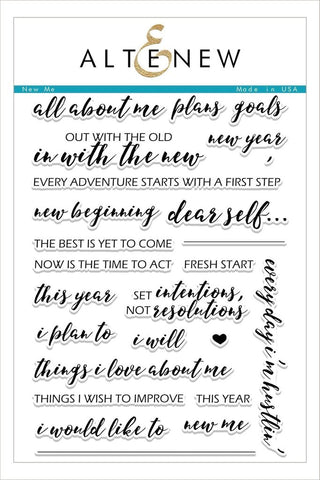 ALTENEW
New Me Made in USA
all about me plans goals
OUT WITH THE OLD
new year
in with the new ,
EVERY ADVENTURE STARTS WITH A FIRST STEP
new beginning dear self...
THE BEST IS YET TO COME
NOW IS THE TIME TO ACT FRESH START
this year
SET intentions,
NOT resolutions
i plan to i will
things i love about me
THINGS I WISH TO IMPROVE THIS YEAR
i would like to new me
everyday i'm hustlin'